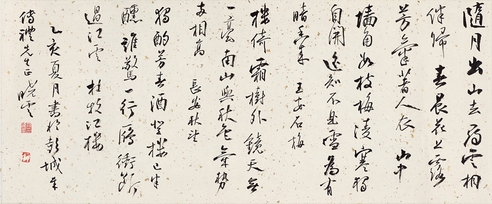 隨月出山去尋雲相
伴歸 春晨花上露
芳氣著人衣 山中
墻角數枝梅凌寒獨
自開遙知不是雪為有
暗香來 王安石梅
樓倚霜樹外鏡天無
一毫南山與秋色氣勢
兩相高 長安秋望
獨酌芳春酒登樓已半
醺誰驚一行雁衝斷
過江雲 杜牧江樓
乙亥夏月書於彭城
先生正